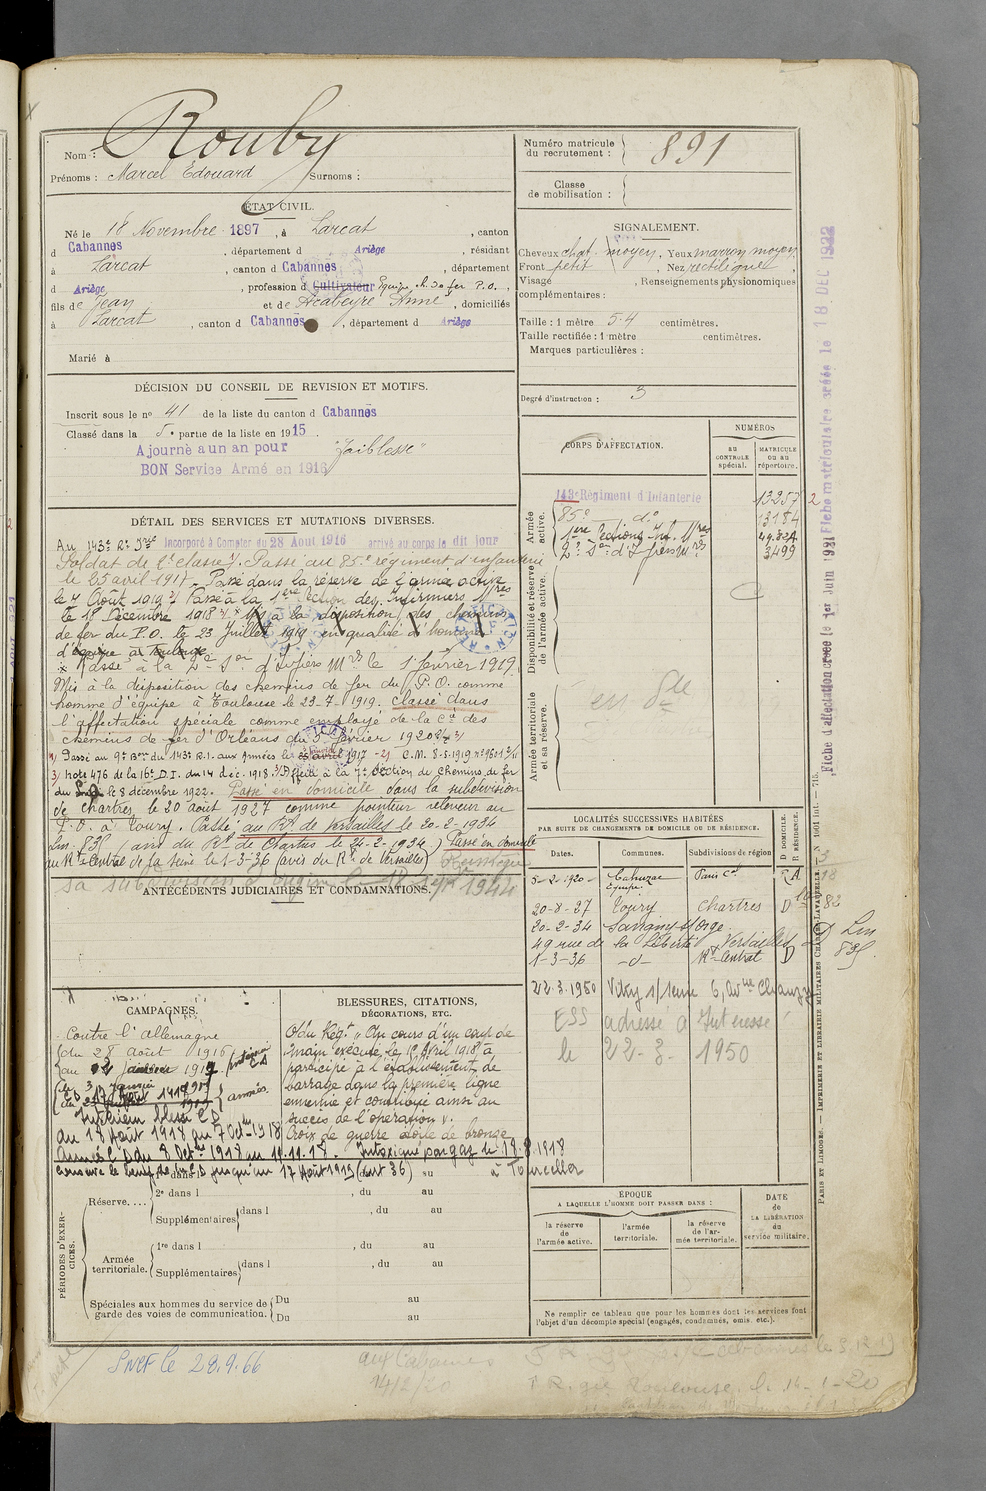 Nom : Rouby
Prénoms : Marcel Edouard Surnoms :
Numéro matricule du recrutement : 891
Classe de mobilisation :
ÉTAT CIVIL.
Né le 18 Novembre 1897, à Larcat, canton
d Cabannes, département d Ariège, résidant
à Larcat, canton d Cabannes, département
d Ariège, profession d Cultivateur Equipe ch. de fer P.O.,
fils de Jean et de Anne, domiciliés
à Larcat, canton d Cabannes, département d Ariège
Marié à
SIGNALEMENT.
Cheveux chat. moyen, Yeux marron moyen,
Front petit, Nez rectiligne,
Visage, Renseignements physionomiques
complémentaires :
Taille : 1 mètre 54 centimètres.
Taille rectifiée : 1 mètre centimètres.
Marques particulières :
Degré d'instruction : 3
DÉCISION DU CONSEIL DE REVISION ET MOTIFS.
Inscrit sous le no 41 de la liste du canton d Cabannes
Classé dans la 5e partie de la liste en 1915.
Ajourné a un an pour "faiblesse"
BON Service Armé en 1916
CORPS D'AFFECTATION.
NUMÉROS
AU CONTROLE spécial.
MATRICULE OU AU répertoire.
Armée active.
143e Régiment d'Infanterie 13257
85e do 13184
3499
Disponibilité et réserve de l'armée active.
Armée territoriale et sa réserve.
DÉTAIL DES SERVICES ET MUTATIONS DIVERSES.
Au 143e Rt Inf. Incorporé à Compter du 28 Aout 1916 arrivé au corps le dit jour
Soldat de 2e classe 1) Passé au 85e régiment d'infanterie
le 25 avril 1917. Passé dans la réserve de l'armée active
le 7 Août 1919 2) Passé à la 1ère section des Infirmiers Mres
le 18 Décembre 1918 3) * Mis à la disposition des chemins
de fer du P.O. le 23 Juillet 1919 en qualité d'homme
d'équipe à Toulouse.
* Passé à la 2e Son d'Infiers Mres le 1 février 1919
Mis à la disposition des chemins de fer du P.O. comme
homme d'équipe à Toulouse le 23-7-1919. classé dans
l'affectation spéciale comme employé de la Cie des
chemins de fer d'Orléans du 5 février 1920
1) Passé au 9e Bon du 143e R.I. aux Armées le avril 1917 - 2) C.M. 8-5-1919 no
3) note 476 de la 16e D.I. du 14 déc. 1918. Affecté à la 7e Section de Chemins de fer
le 8 décembre 1922. Passé en domicile dans la subdivision
de Chartres le 20 août 1927 comme pointeur releveur au
P.O. à Toury. Passé au Rt de Versailles le 20-2-1934
Lin. 835 avis du Rt de Chartres le 24-2-1934. Passé en domicile
au Rt Central de la Seine le 1-3-36 (avis du Rt de Versailles)
sa subdivision d'origine le sept 1944
ANTÉCÉDENTS JUDICIAIRES ET CONDAMNATIONS.
LOCALITÉS SUCCESSIVES HABITÉES
PAR SUITE DE CHANGEMENTS DE DOMICILE OU DE RÉSIDENCE.
Dates. Communes. Subdivisions de région D DOMICILE. R RÉSIDENCE.
5-2-1920 Cahuzac Paris R
Equipe
20-8-27 Toury Chartres D
20-2-34 Savigny s/Orge
49 rue de la Liberté Versailles D Lin 835
1-3-36 -d- Rt Central D
22.3.1950 Vitry s/Seine 6, Avnue Chanzy
ESS adresse à Intéressé
le 22-3-1950
CAMPAGNES.
Contre l'allemagne
du 28 août 1916
intérieur CS
armées
Intérieur blessé CD
du 18 Août 1918 au 7 Octbre 1918
Armées CD du 8 Octbre 1918 au 11.11.18. Intoxiqué par gaz le 18.8.1918
jusqu'au 17 Août 1919 à Tourcelles
BLESSURES, CITATIONS, DÉCORATIONS, ETC.
O/du Régt „ Au cours d'un coup de
main exécuté le avril 1918 a
participé à l'établissement de
barrage dans la première ligne
ennemie et contribué ainsi au
succès de l'opération ".
Croix de guerre étoile de bronze
PÉRIODES D'EXERCICES.
Réserve....
1re dans l su
2e dans l, du au
Supplémentaires dans l, du au
Armée territoriale.
1re dans l, du au
Supplémentaires dans l, du au
Spéciales aux hommes du service de garde des voies de communication.
Du au
Du au
ÉPOQUE
A LAQUELLE L'HOMME DOIT PASSER DANS :
la réserve de l'armée active.
l'armée territoriale.
la réserve de l'armée territoriale.
DATE de LA LIBÉRATION du service militaire.
Ne remplir ce tableau que pour les hommes dont les services font
l'objet d'un décompte spécial (engagés, condamnés, omis, etc.).
Fiche d'affectation créée le 1er Juin 1921 Fiche matriculaire créée le 18 DEC 1922
PARIS ET LIMOGES. — IMPRIMERIE ET LIBRAIRIE MILITAIRES CHARLES-LAVAUZELLE.
SNCF le 28.9.66
aux Cabannes
14/2/20
Toulouse le 14-1-20